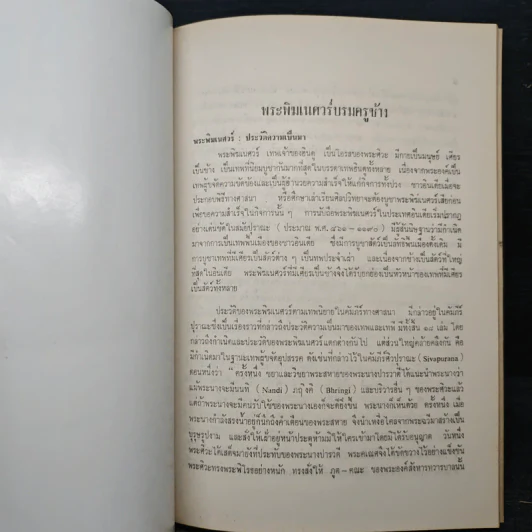 พระพิฆเนศวร์บรมครูช้าง
พระพิฆเนศวร์ : ประวัติความเป็นมา
พระพิฆเนศวร์ เทพเจ้าของฮินดู เป็นโอรสของพระศิวะ มีกายเป็นมนุษย์ เศียร
เป็นช้าง เป็นเทพที่นิยมบูชากันมากที่สุดในบรรดาเทพฮินดูทั้งหลาย เนื่องจากพระองค์เป็น
เทพผู้ขจัดความขัดข้องและเป็นผู้อำนวยความสำเร็จให้แก่กิจการทั้งปวง ชาวอินเดียเมื่อจะ
ประกอบพิธีทางศาสนา หรือศึกษาเล่าเรียนศิลปวิทยาจะต้องบูชาพระพิฆเนศวร์เสียก่อน
เพื่อขอความสำเร็จในกิจการนั้น ๆ การนับถือพระพิฆเนศวร์ในประเทศอินเดียเริ่มปรากฏ
อย่างเด่นชัดในสมัยปุราณะ (ประมาณ พ.ศ. ๘๖๑ – ๑๑๙๐) มีผู้สันนิษฐานว่ามีกำเนิด
มาจากการเป็นเทพพื้นเมืองของชาวอินเดีย ซึ่งมีการบูชาสัตว์เป็นลัทธิพื้นเมืองดั้งเดิม มี
การบูชาเทพที่มีเศียรเป็นสัตว์ต่าง ๆ เป็นเทพประจำเผ่า และเนื่องจากช้างเป็นสัตว์ที่ใหญ่
ที่สุดในอินเดีย พระพิฆเนศวร์ที่มีเศียรเป็นช้างจึงได้รับยกย่องเป็นหัวหน้าของเทพที่มีเศียร
เป็นสัตว์ทั้งหลาย
ประวัติของพระพิฆเนศวร์ตามเทพนิยายในคัมภีร์ทางศาสนา มีกล่าวอยู่ในคัมภีร์
ปุราณะซึ่งเป็นเรื่องราวที่กล่าวถึงประวัติความเป็นมาของเทพและเทพี มีทั้งสิ้น ๑๘ เล่ม โดย
กล่าวถึงกำเนิดและประวัติของพระพิฆเนศวร์แตกต่างกันไป แต่ส่วนใหญ่คล้ายคลึงกัน คือ
มีกำเนิดมาในฐานะเทพผู้ขจัดอุปสรรค ดังเช่นที่กล่าวไว้ในคัมภีร์ศิวปุราณะ (Sivapurana)
ตอนหนึ่งว่า “ครั้งหนึ่ง ชยาและวิชยาพระสหายของนางปารวตีได้แนะนำพระนางว่า
แม้พระนางจะมีนนทิ (Nandi) ภฤงคิ (Bhringi) และบริวารอื่น ๆ ของพระศิวะแล้ว
แต่ถ้าพระนางจะมีคนรับใช้ของพระนางเองก็จะดียิ่งขึ้น พระนางก็เห็นด้วย ครั้งหนึ่ง เมื่อ
พระนางกำลังสรงน้ำอยู่ก็นึกถึงคำเตือนของพระสหาย จึงนำเหงื่อไคลจากพระฉวีมาสร้างเป็น
บุรุษรูปงาม และสั่งให้เฝ้าอยู่หน้าประตูห้ามมิให้ใครเข้ามาโดยมิได้รับอนุญาต วันหนึ่ง
พระศิวะได้เสด็จมายังที่ประทับของพระนางปารวตี พระคเณศจึงได้ขัดขวางไว้อย่างแข็งขัน
พระศิวะทรงพระพิโรธอย่างหนัก ทรงสั่งให้ ภูต–คณะ ของพระองค์สังหารทวารบาลนั้น